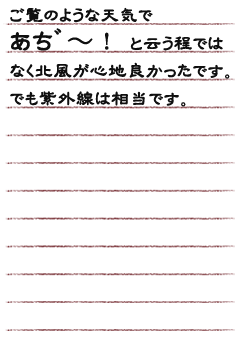 ご覧のような天気で
あぢ゛〜！ と云う程では
なく北風が心地良かったです。
でも紫外線は相当です。